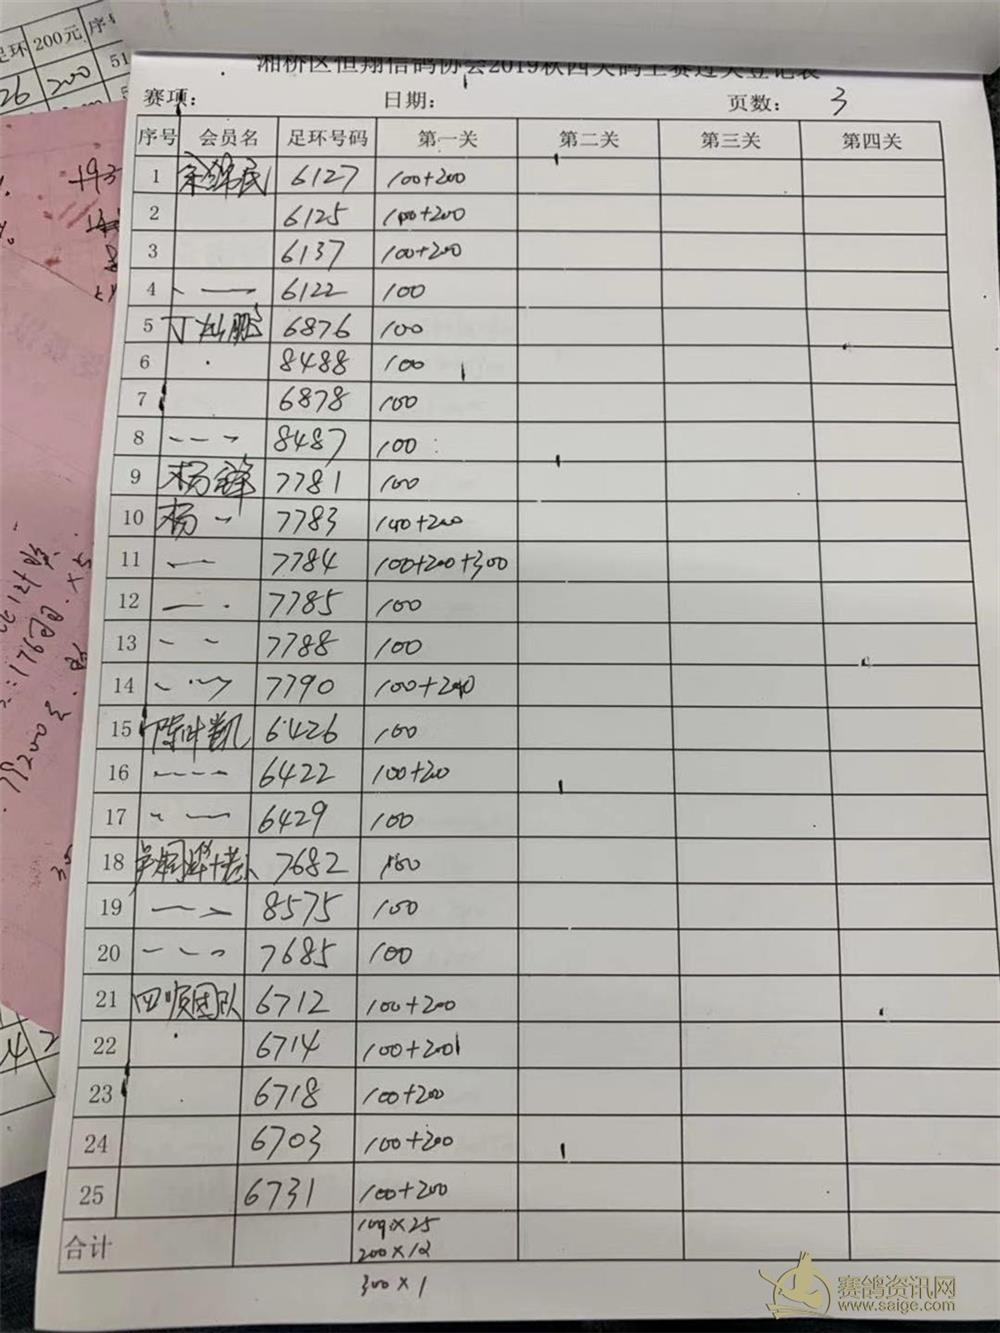 足环 200元 序号
26 200 51
湘桥区恒翔信鸽协会2019秋四关鸽王赛过关登记表
赛项： 日期： 页数： 3
序号 会员名 足环号码 第一关 第二关 第三关 第四关
1 6127 100+200
2 6125 100+200
3 6137 100+200
4 6122 100
5 丁灿鹏 6876 100
6 8488 100
7 6878 100
8 8487 100
9 杨锋 7781 100
10 杨 7783 100+200
11 7784 100+200+300
12 7785 100
13 7788 100
14 7790 100+200
15 陈叶凯 6426 100
16 6422 100+200
17 6429 100
18 7682 100
19 8575 100
20 7685 100
21 四顺团队 6712 100+200
22 6714 100+200
23 6718 100+200
24 6703 100+200
25 6731 100+200
合计 100×25
200×12
300×1
赛鸽资讯网
www.saige.com